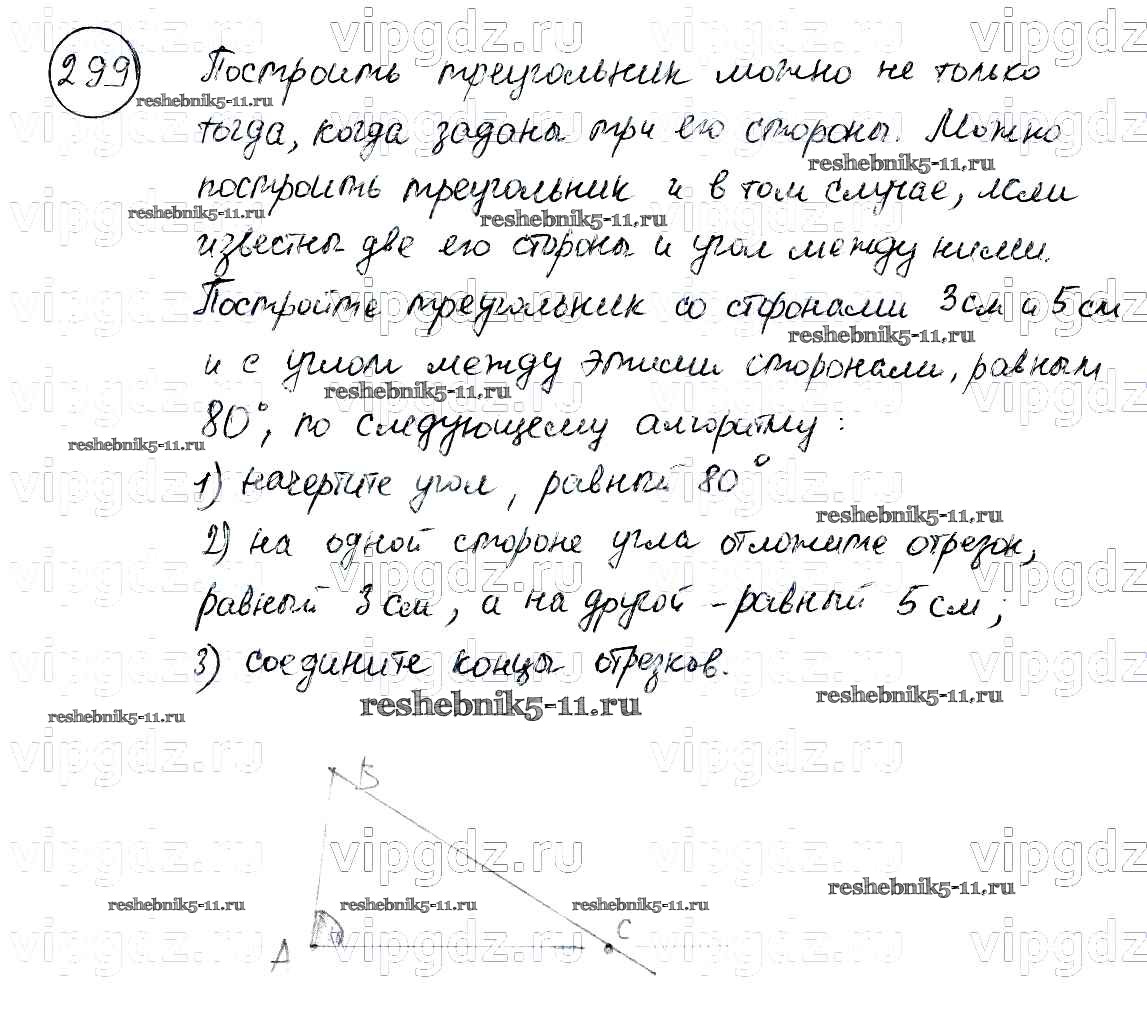 299 Построить треугольник можно не только
тогда, когда заданы три его стороны. Можно
построить треугольник и в том случае, если
известны две его стороны и угол между ними.
Постройте треугольник со сторонами 3 см и 5 см
и с углом между этими сторонами, равным
80°, по следующему алгоритму:
1) начертите угол, равный 80°
2) на одной стороне угла отложите отрезок,
равный 3 см, а на другой – равный 5 см;
3) соедините концы отрезков.
B
A
C
vipgdz.ru
reshebnik5-11.ru